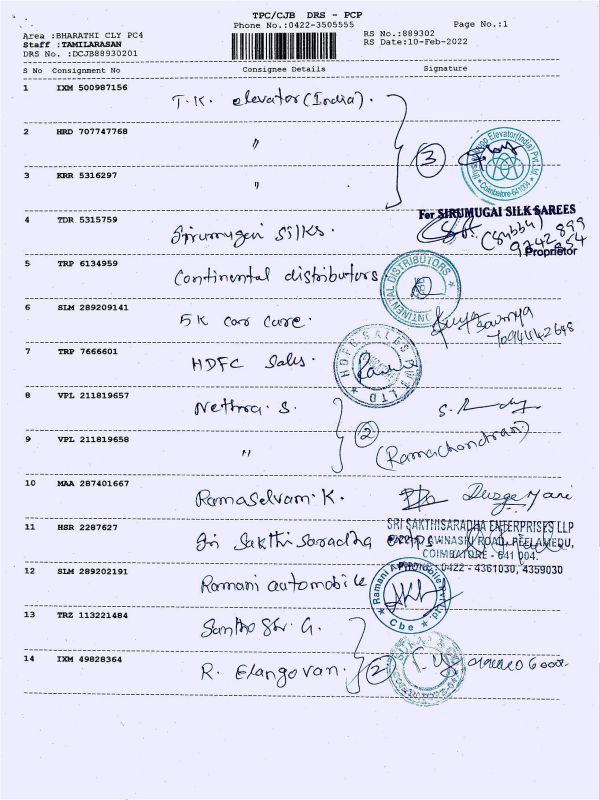 TPC/CJB DRS - PCP
Phone No.:0422-3505555
Page No.:1
Area :BHARATHI CLY PC4
RS No.:889302
Staff :TAMILARASAN
RS Date:10-Feb-2022
DRS No. :DCJB88930201
S No Consignment No Consignee Details Signature
1 IXM 500987156 T.K. elevator (India).
2 HRD 707747768 "
3
3 KRR 5316297 "
Elevator(India) Pvt.Ltd
Coimbatore-641
For SIRUMUGAI SILK SAREES
4 TDR 5315759 Sirumugai silks.
(Subbu)
Proprietor
5 TRP 6134959 Continental distributors
CONTINENTAL DISTRIBUTORS
6 SLM 289209141 5K car care.
7 TRP 7666601 HDFC Sales.
HDFC SALES PVT LTD
8 VPL 211819657 Nethra. S.
2
9 VPL 211819658 "
(Ramachandran)
10 MAA 287401667 Ramaselvam. K.
SRI SAKTHISARADHA ENTERPRISES LLP
11 HSR 2287627 Sri Sakthi Saradha
AVINASHI ROAD, PEELAMEDU,
COIMBATORE - 641 004.
0422 - 4361030, 4359030
12 SLM 289202191 Ramani automobile
Ramani Automobile
Cbe
13 TRZ 113221484 Santhosh. G.
14 IXM 49828364 R. Elangovan.
2